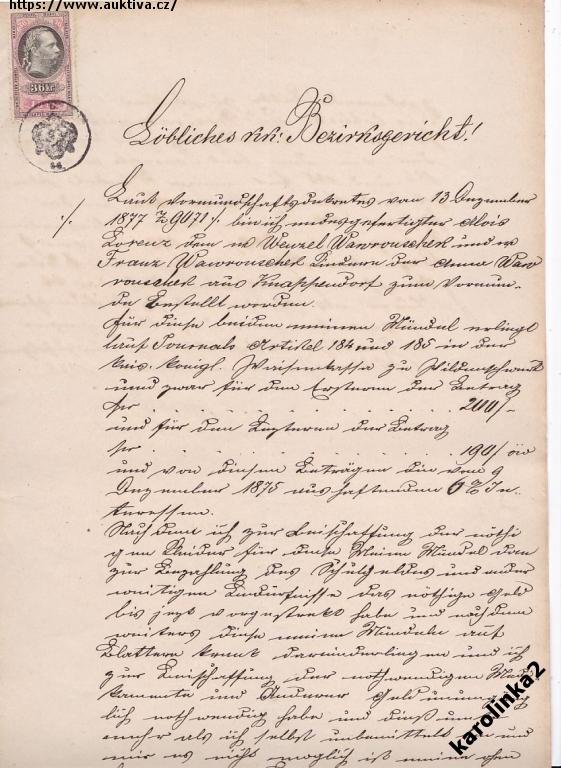 https://www.auktiva.cz/
36 kr
Löbliches kk: Bezirksgericht!
Laut Vormundschaftsdekretes vom 13 Dezember
1877 Z 9071 /. bin ich endesgefertigter Alois
Lorenz dem mj Wenzel Wawrouschek und mj
Franz Wawrouschek Kindern der Anna Waw
rouschek aus Knappendorf zum Vormun-
de bestellt worden.
Für diese beiden meinen Mündel erliegt
laut Journals Artikel 184 und 185 in der
kais. königl. Waisenkasse zu Wildenschwert
und zwar für den Ersteren der Betrag
per . . . . . . . . . . . . . . . . 200/-
und für den Letzteren der Betrag
per . . . . . . . . . . . . . . . . 190/ öw
und von diesen Beträgen die vom 9
Dezember 1875 aushaftenden 6 % In-
teressen.
Nachdem ich zur Beischaffung der nöthi
gen Kleider für diese Meine Mündel dann
zur Bezahlung des Schulgeldes und ander
weitigen Bedürfnisse das nöthige Geld
bis jezt vorgestrekt habe und nachdem
weiters diese meine Mündeln auf
Blattern krank darniederliegen und ich
zur Beischaffung der nothwendigen Medi
kamente und Anderer Geld
lich nothwendig habe und dieß um
mehr als ich selbst unbemittelt bin und
mir es nicht möglich ist meine
karolinka2